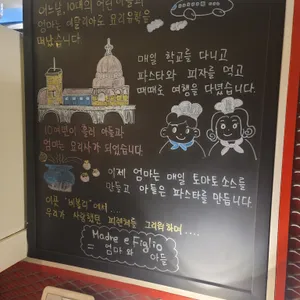 어느날, 10대의 어린 아들과
엄마는 이탈리아로 요리유학을
떠났습니다.
매일 학교를 다니고
파스타와 피자를 먹고
때때로 여행을 다녔습니다.
10여년이 흘러 아들과
엄마는 요리사가 되었습니다.
이제 엄마는 매일 토마토소스를
만들고 아들은 파스타를 만듭니다.
이곳
에서....
우리가 사랑했던 피렌체를 그리워하며....
Madre e Figlio
= 엄마와 아들